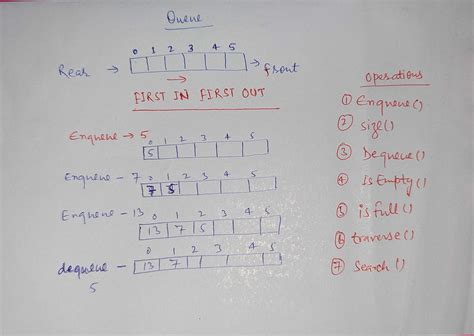 Queue
0 1 2 3 4 5
Rear → → front
→
FIRST IN FIRST OUT
Enqueue → 5
0 1 2 3 4 5
5
Enqueue - 7 0 1 2 3 4 5
7 5
Enqueue - 13 0 1 2 3 4 5
13 7 5
0 1 2 4 5
dequeue - 13 7
5
Operations
① Enqueue()
② size()
③ Dequeue()
④ IsEmpty()
⑤ isfull()
⑥ traverse()
⑦ Search()